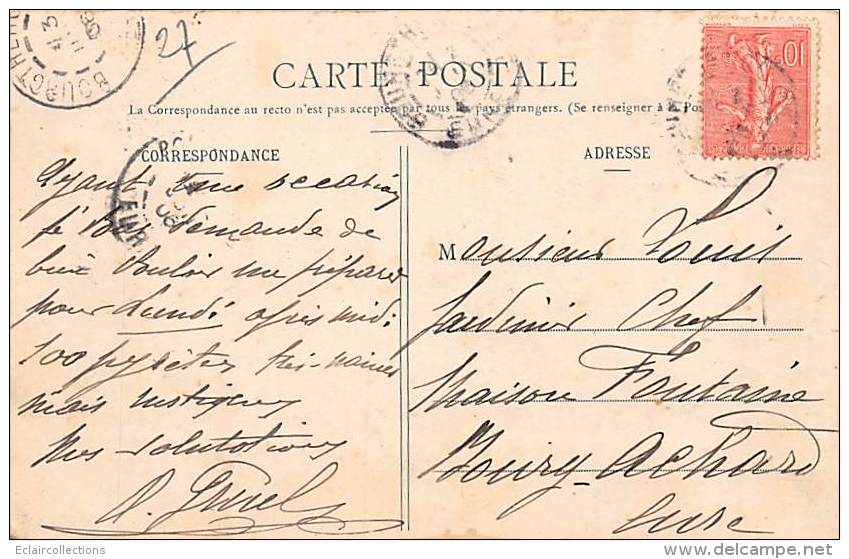 27
BOURGTHEROULDE
10
CARTE POSTALE
La Correspondance au recto n'est pas acceptée par tous les pays étrangers. (Se renseigner à la Poste)
CORRESPONDANCE
Ayant une occation
je vous demande de
bien vouloir me préparer
pour Lundi après midi
100 pyrètres
mais
Mes salutations
ADRESSE
Monsieur Louis
Jardinier Chef
Maison Fontaine
Bourg-Achard
Eure
Eclaircollections
delcampe.net